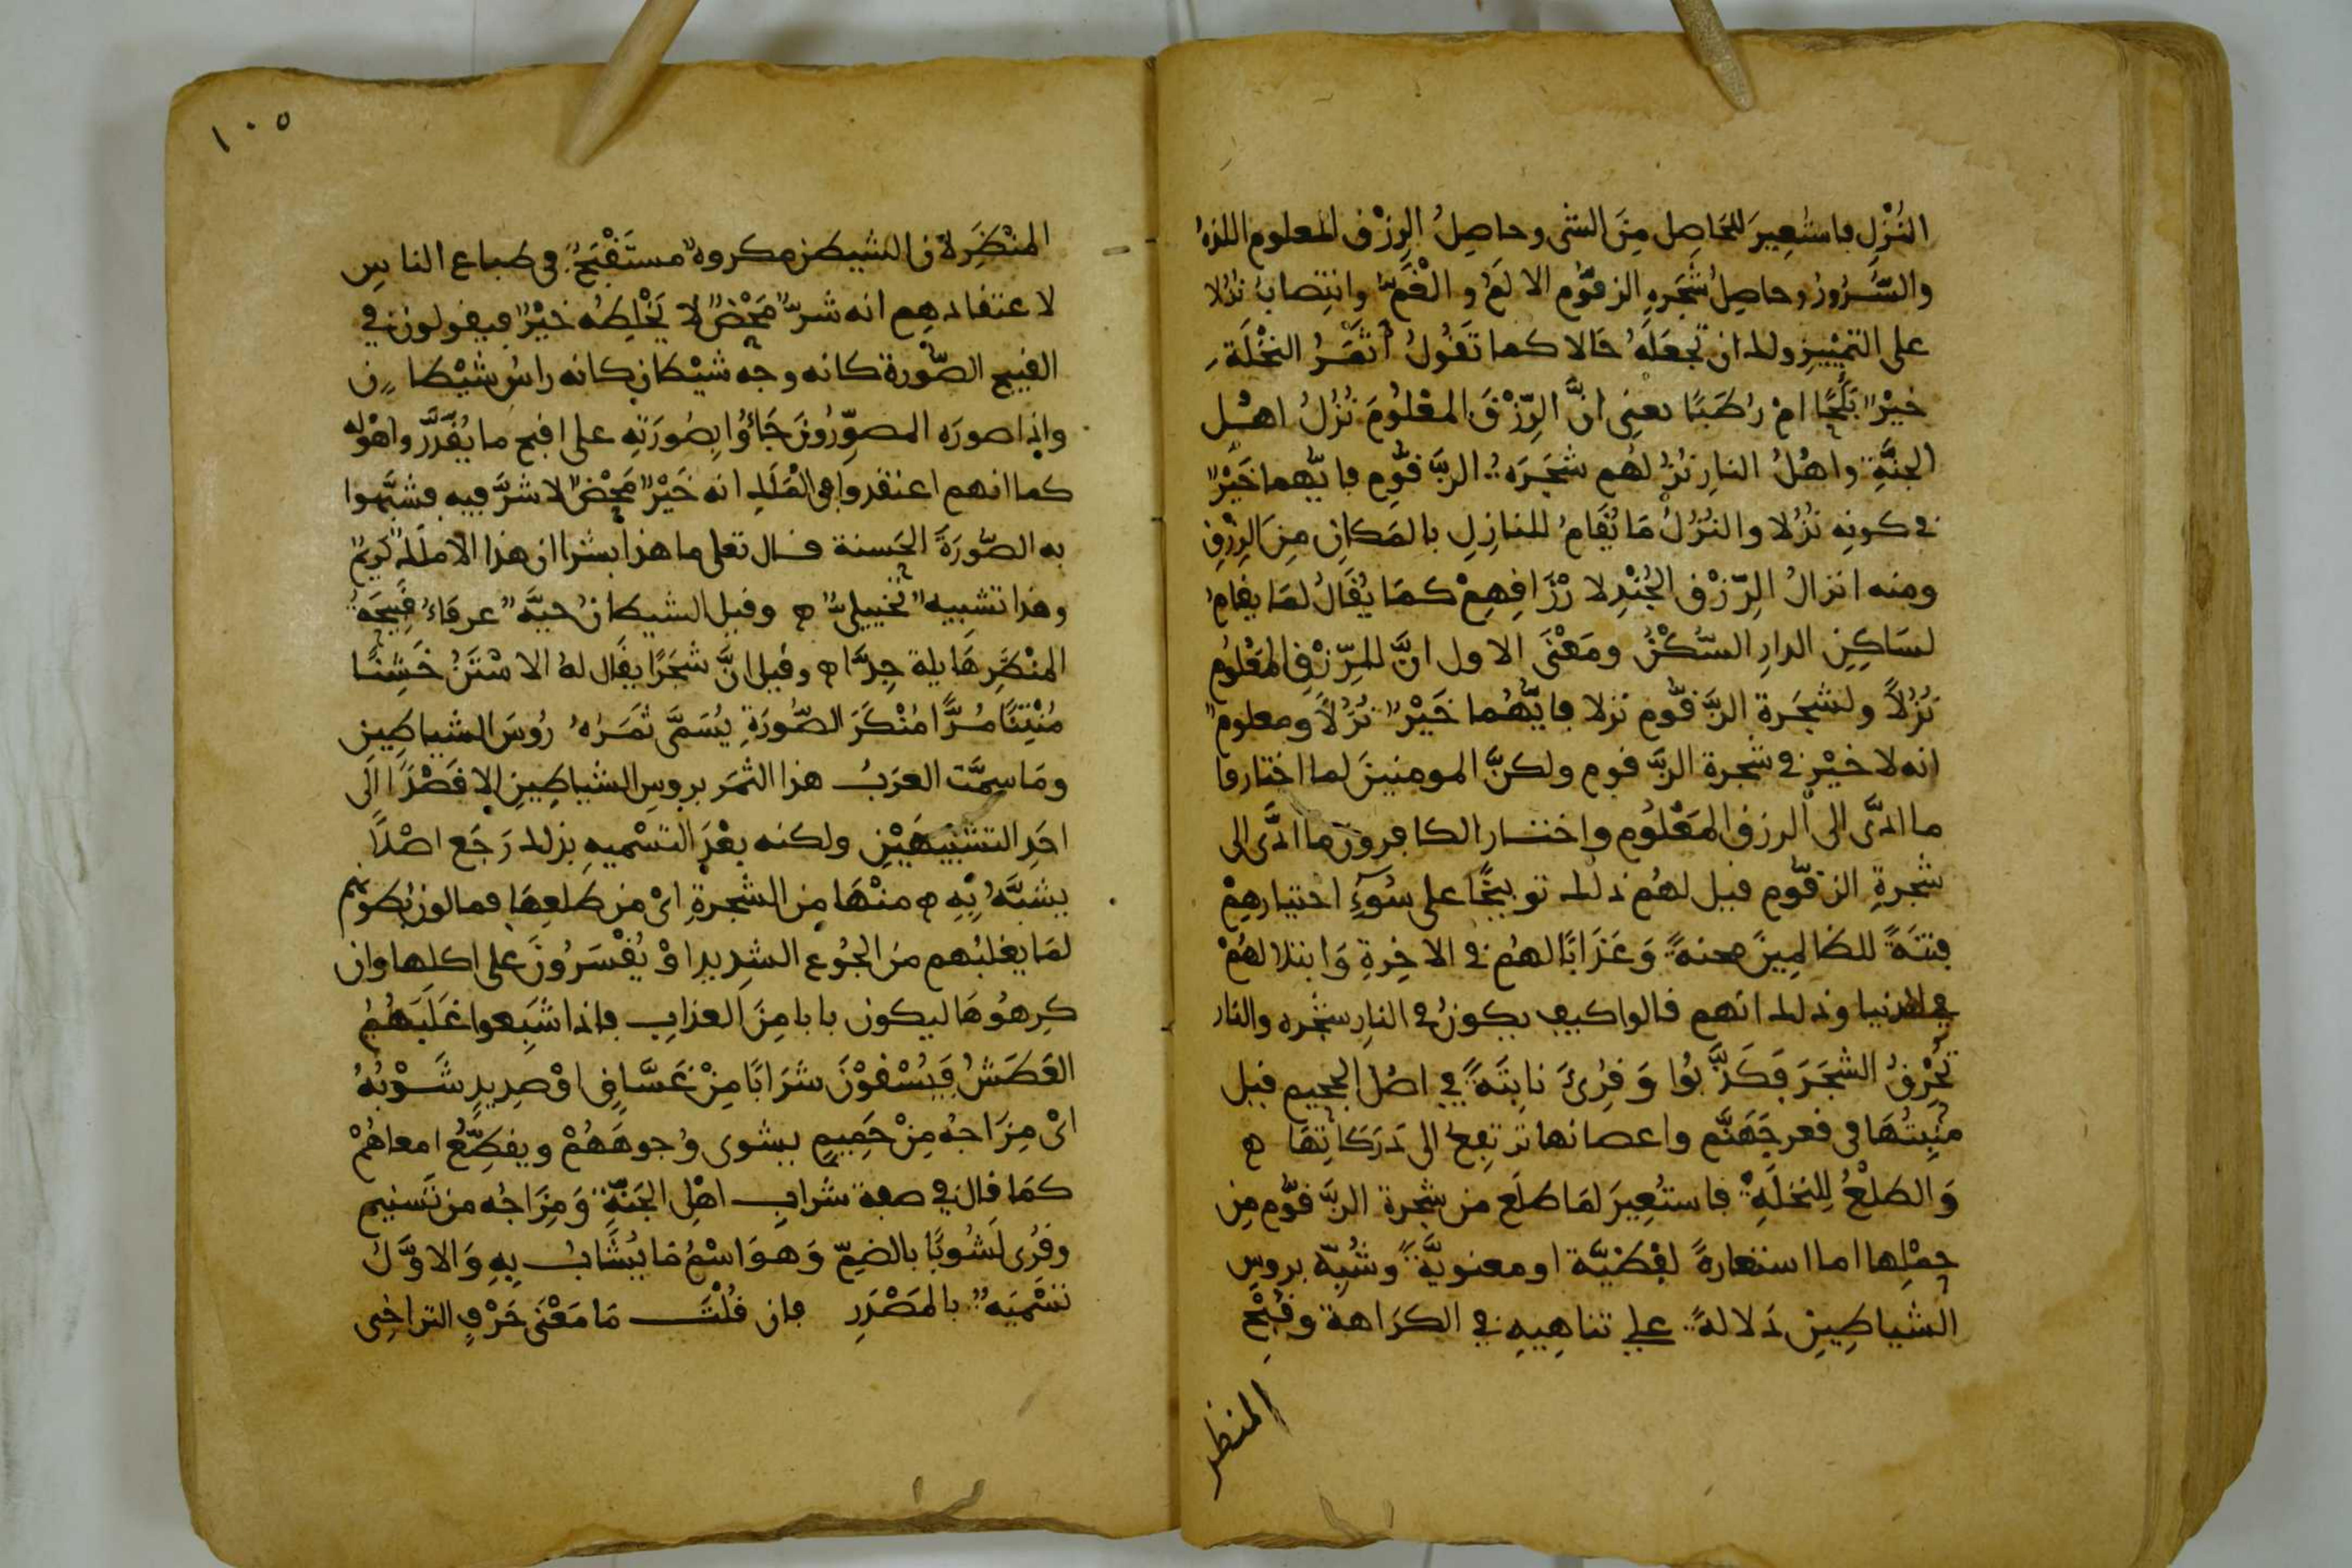 النُزْلِ فاستُعِيرَ للحَاصِل مِنَ الشى وحاصِلُ الرِزْق المعلوم اللذة
والسُّرُورُ وحاصِلُ شجَرةِ الزقّوم الالَمُ و الغَمّ وانتِصابُ نُزُلا
على التمْيِيزِ ولك ان تجعَلَهُ حَالا كما تَقُولُ أثمَرُ النخْلَةِ
خيْرٌ بَلَحًا امْ رُطَبًا يعنِى انَّ الرِّزْقَ المعْلُومَ نُزُلُ اهْل
الجنَّةِ واهْلُ النارِ نُزُلهُم شجَرَةُ الزَّقّومِ فايّهما خَيْرٌ
في كونِه نُزُلا والنُزُلُ مَا يُقَامُ للنازِلِ بالمَكانِ مِنَ الرِزْقِ
ومنه انزالُ الرّزْق الجُنْدِ لارْزَاقِهِمْ كمَا يُقَالُ لمَا يقامُ
لسَاكِنِ الدارِ السُّكْنُ ومَعْنَى الاول انَّ للرّزْقِ المَعْلُومِ
نُزُلاً ولشجَرة الزَّقّوم نزلا فايّهُما خَيْرٌ نُزُلاً ومعلومٌ
انه لا خيْر في شجرة الزَّقوم ولكنَّ المومنينَ لما اختاروا
ما ادَّى الى الرزق المَعْلُومِ واختار الكافرون ما ادَّى الى
شجرةِ الزقّوم قيل لهُم ذلك توبيخًا على سُوءِ اختيارهِمْ
فِتنَةً للظالِمِينَ محنةً وَعَذَابًا لهُم في الاخِرةِ وَابتلا لهُمْ
في الدنيا وذلك انهم قالوا كيف يكونُ في النارِ شجره والنار
تُحْرِقُ الشجَرَ فَكَذَّبُوا وَقُرِئَ نابِتَةً في اصْل الجحيم قيل
منْبِتُهَا فى قعر جَهَنَّم واغصانها ترتفِعُ الى دَرَكَاتِهَا ه
وَالطلْعُ لِلنخلَةِ فاستُعِيرَ لمَا طلَع من شجرة الزَّقّوم مِن
حِمْلِها اما استعارةً لفْظيَّة او معنويَّةً وشُبِّهَ بروسِ
الشياطِينِ دَلالةً على تناهِيهِ في الكرَاهة وقُبْحِ
المنظر
١٠٥
المنْظَرِ لان الشيطن مكروهٌ مستَقْبَحٌ فى طباع الناسِ
لاعتقادهِم انه شرٌّ مَحْضٌ لا يَخْلِطُه خَيْرٌ فيقولون في
القبيح الصُّورة كانه وجه شيْطان كانه راسُ شيْطان
واذا صوره المصوِّرُونَ جَاؤُا بِصُورَتِهِ على اقبح ما يُقَدَّر واهْوله
كما انهم اعتقدوا فى المَلَكِ انه خَيْرٌ مَحْضٌ لا شرَّ فيه فشبَّهوا
به الصُّورَةَ الحَسنة قال تعلى ما هذا بشرا ان هذا الا ملَكٌ كَرِيمٌ
وهذا تشبيهٌ تخييلىّ ه وقيل الشيطانُ حيَّةٌ عرفاءُ قبِيحَةُ
المنْظَرِ هَايلة جِدًّا ه وقيل انَّ شجَرًا يقَال لهُ الاسْتَنُ خَشِنًا
مُنْتِنًا مُرًّا مُنْكَرَ الصُّورَةِ يُسَمَّى ثَمَرُهُ رُوسَ الشياطِين
ومَا سمَّت العرَبُ هذا الثمَر بروسِ الشياطِينِ الا قَصْدًا الَى
احَدِ التشبِيهَيْنِ ولكنه بعْدَ التسْميهِ بذلك رَجَع اصْلاً
يشبَّهُ بِهِ ه منْهَا مِن الشجرةِ اىْ من طلعِهَا فمالون بُطونَهُم
لمَا يغلبُهم منَ الجُوع الشدِيدِ اوْ يُقْسَرُونَ على اكلِها وان
كرِهُوهَا ليكون بابا مِنَ العذابِ فاذا شَبِعوا غَلَبَهُمُ
العَطَشُ فَيُسْقوْنَ شرَابًا مِنْ غَسَّاقٍ اوْ صدِيدٍ شَوْبُهُ
اىْ مِزَاجُهُ مِنْ حَمِيمٍ يشوى وُجوهَهُمْ ويقطِّعُ امعاهُمْ
كمَا قال في صفة شرابِ اهْلِ الجَنَّةِ وَمِزَاجُه من تَسنيم
وقُرى لَشُوبًا بالضمِّ وَهوَ اسْمُ مَا يُشَابُ بِهِ وَالاوَّلُ
تَسْميَةٌ بالمَصْدَرِ فان قُلْتَ مَا مَعْنَى حَرْفِ التراخِى